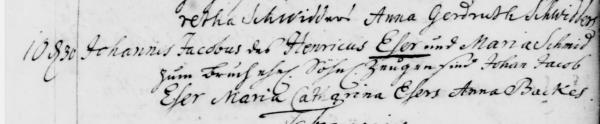 retha Schwidders Anna Gerdruth Schwidders
30 Johannis Jacobus des Henricus Eser und Maria Schmid
zum bruch ehel. Söhn. Zeugen sind Johan Jacob
Eser Maria Catharina Esers Anna Backes.